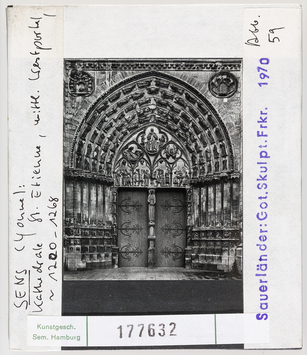 SENS (Yonne):
Kathedrale St. Etienne, mittl. Westportal,
~ 1200 - 1268
Abb.
59
Sauerländer: Got. Skulpt. Frkr. 1970
Kunstgesch.
Sem. Hamburg
177632